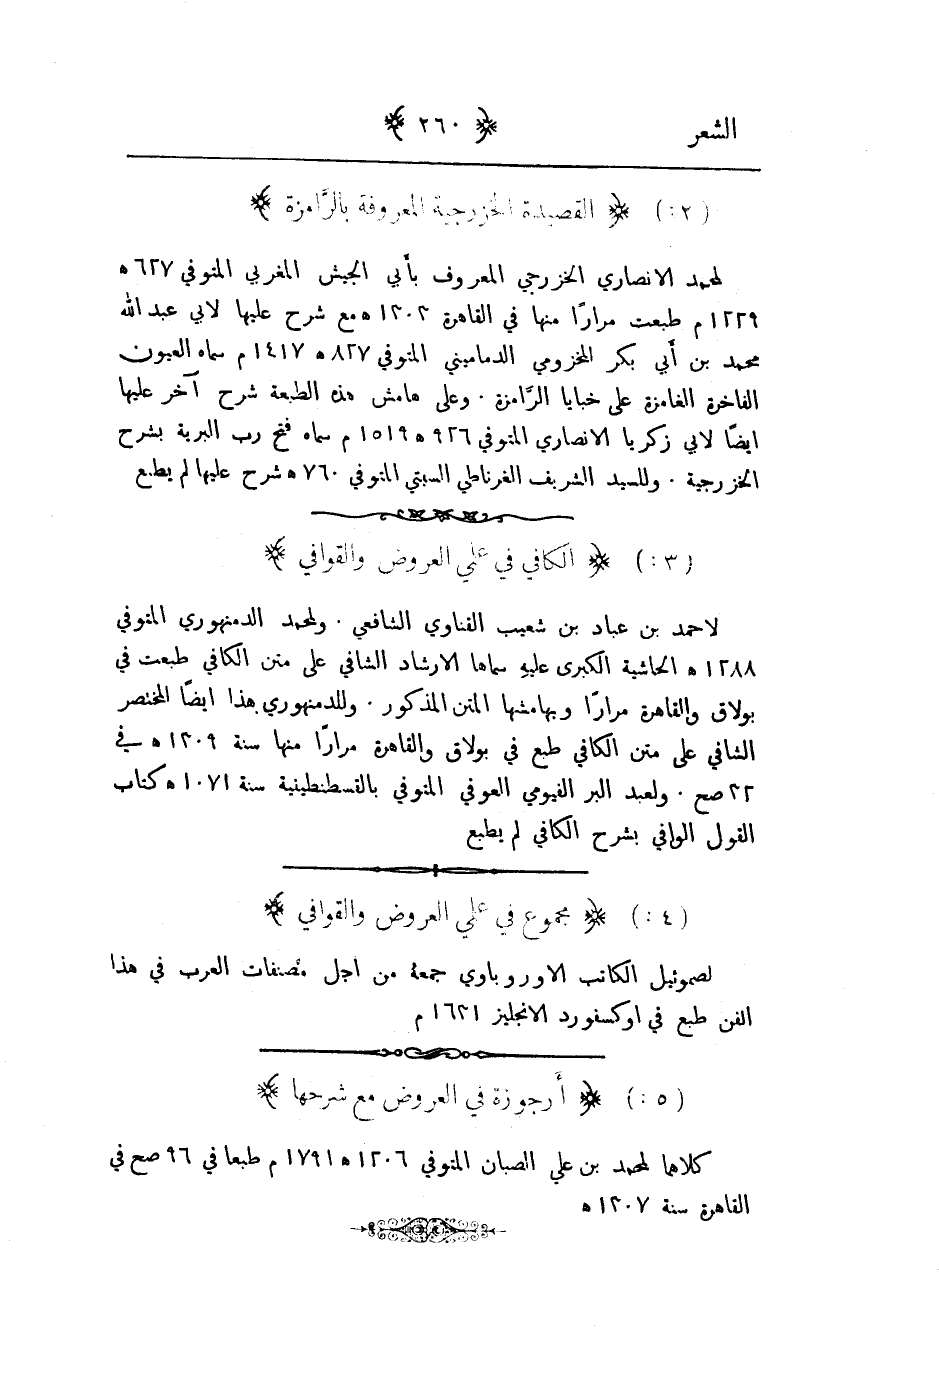 الشعر ﴿ ٢٦٠ ﴾
( ٢ : ) ﴿ القصيدة الخزرجية المعروفة بالرَّامزة ﴾
لمحمد الانصاري الخزرجي المعروف بأبي الجيش المغربي المتوفي ٦٢٧ ه
١٢٢٩ م طبعت مرارًا منها في القاهرة ١٣٠٢ ه مع شرح عليها لابي عبد الله
محمد بن أبي بكر المخزومي الدماميني المتوفي ٨٢٧ ه ١٤١٧ م سماه العيون
الفاخرة الغامزة على خبايا الرَّامزة . وعلى هامش هذه الطبعة شرح آخر عليها
ايضًا لابي زكريا الانصاري المتوفي ٩٢٦ ه ١٥١٩ م سماه فتح رب البرية بشرح
الخزرجية . وللسيد الشريف الغرناطي السبتي المتوفي ٧٦٠ ه شرح عليها لم يطبع
( ٣ : ) ﴿ الكافي في علمي العروض والقوافي ﴾
لاحمد بن عباد بن شعيب القناوي الشافعي . ولمحمد الدمنهوري المتوفي
١٢٨٨ ه الحاشية الكبرى عليهِ سماها الارشاد الشافي على متن الكافي طبعت في
بولاق والقاهرة مرارًا وبهامشها المتن المذكور . وللدمنهوري هذا ايضًا المختصر
الشافي على متن الكافي طبع في بولاق والقاهرة مرارًا منها سنة ١٣٠٩ ه في
٢٢ صح . ولعبد البر الفيومي العوفي المتوفي بالقسطنطينية سنة ١٠٧١ ه كتاب
القول الوافي بشرح الكافي لم يطبع
( ٤ : ) ﴿ مجموع في علمي العروض والقوافي ﴾
لصموئيل الكاتب الاوروباوي جمعهُ من اجل مُصنفات العرب في هذا
الفن طبع في اوكسفورد الانجليز ١٦٢١ م
( ٥ : ) ﴿ أَرجوزة في العروض مع شرحها ﴾
كلاها لمحمد بن علي الصبان المتوفي ١٢٠٦ ه ١٧٩١ م طبعا في ٩٦ صح في
القاهرة سنة ١٣٠٧ ه